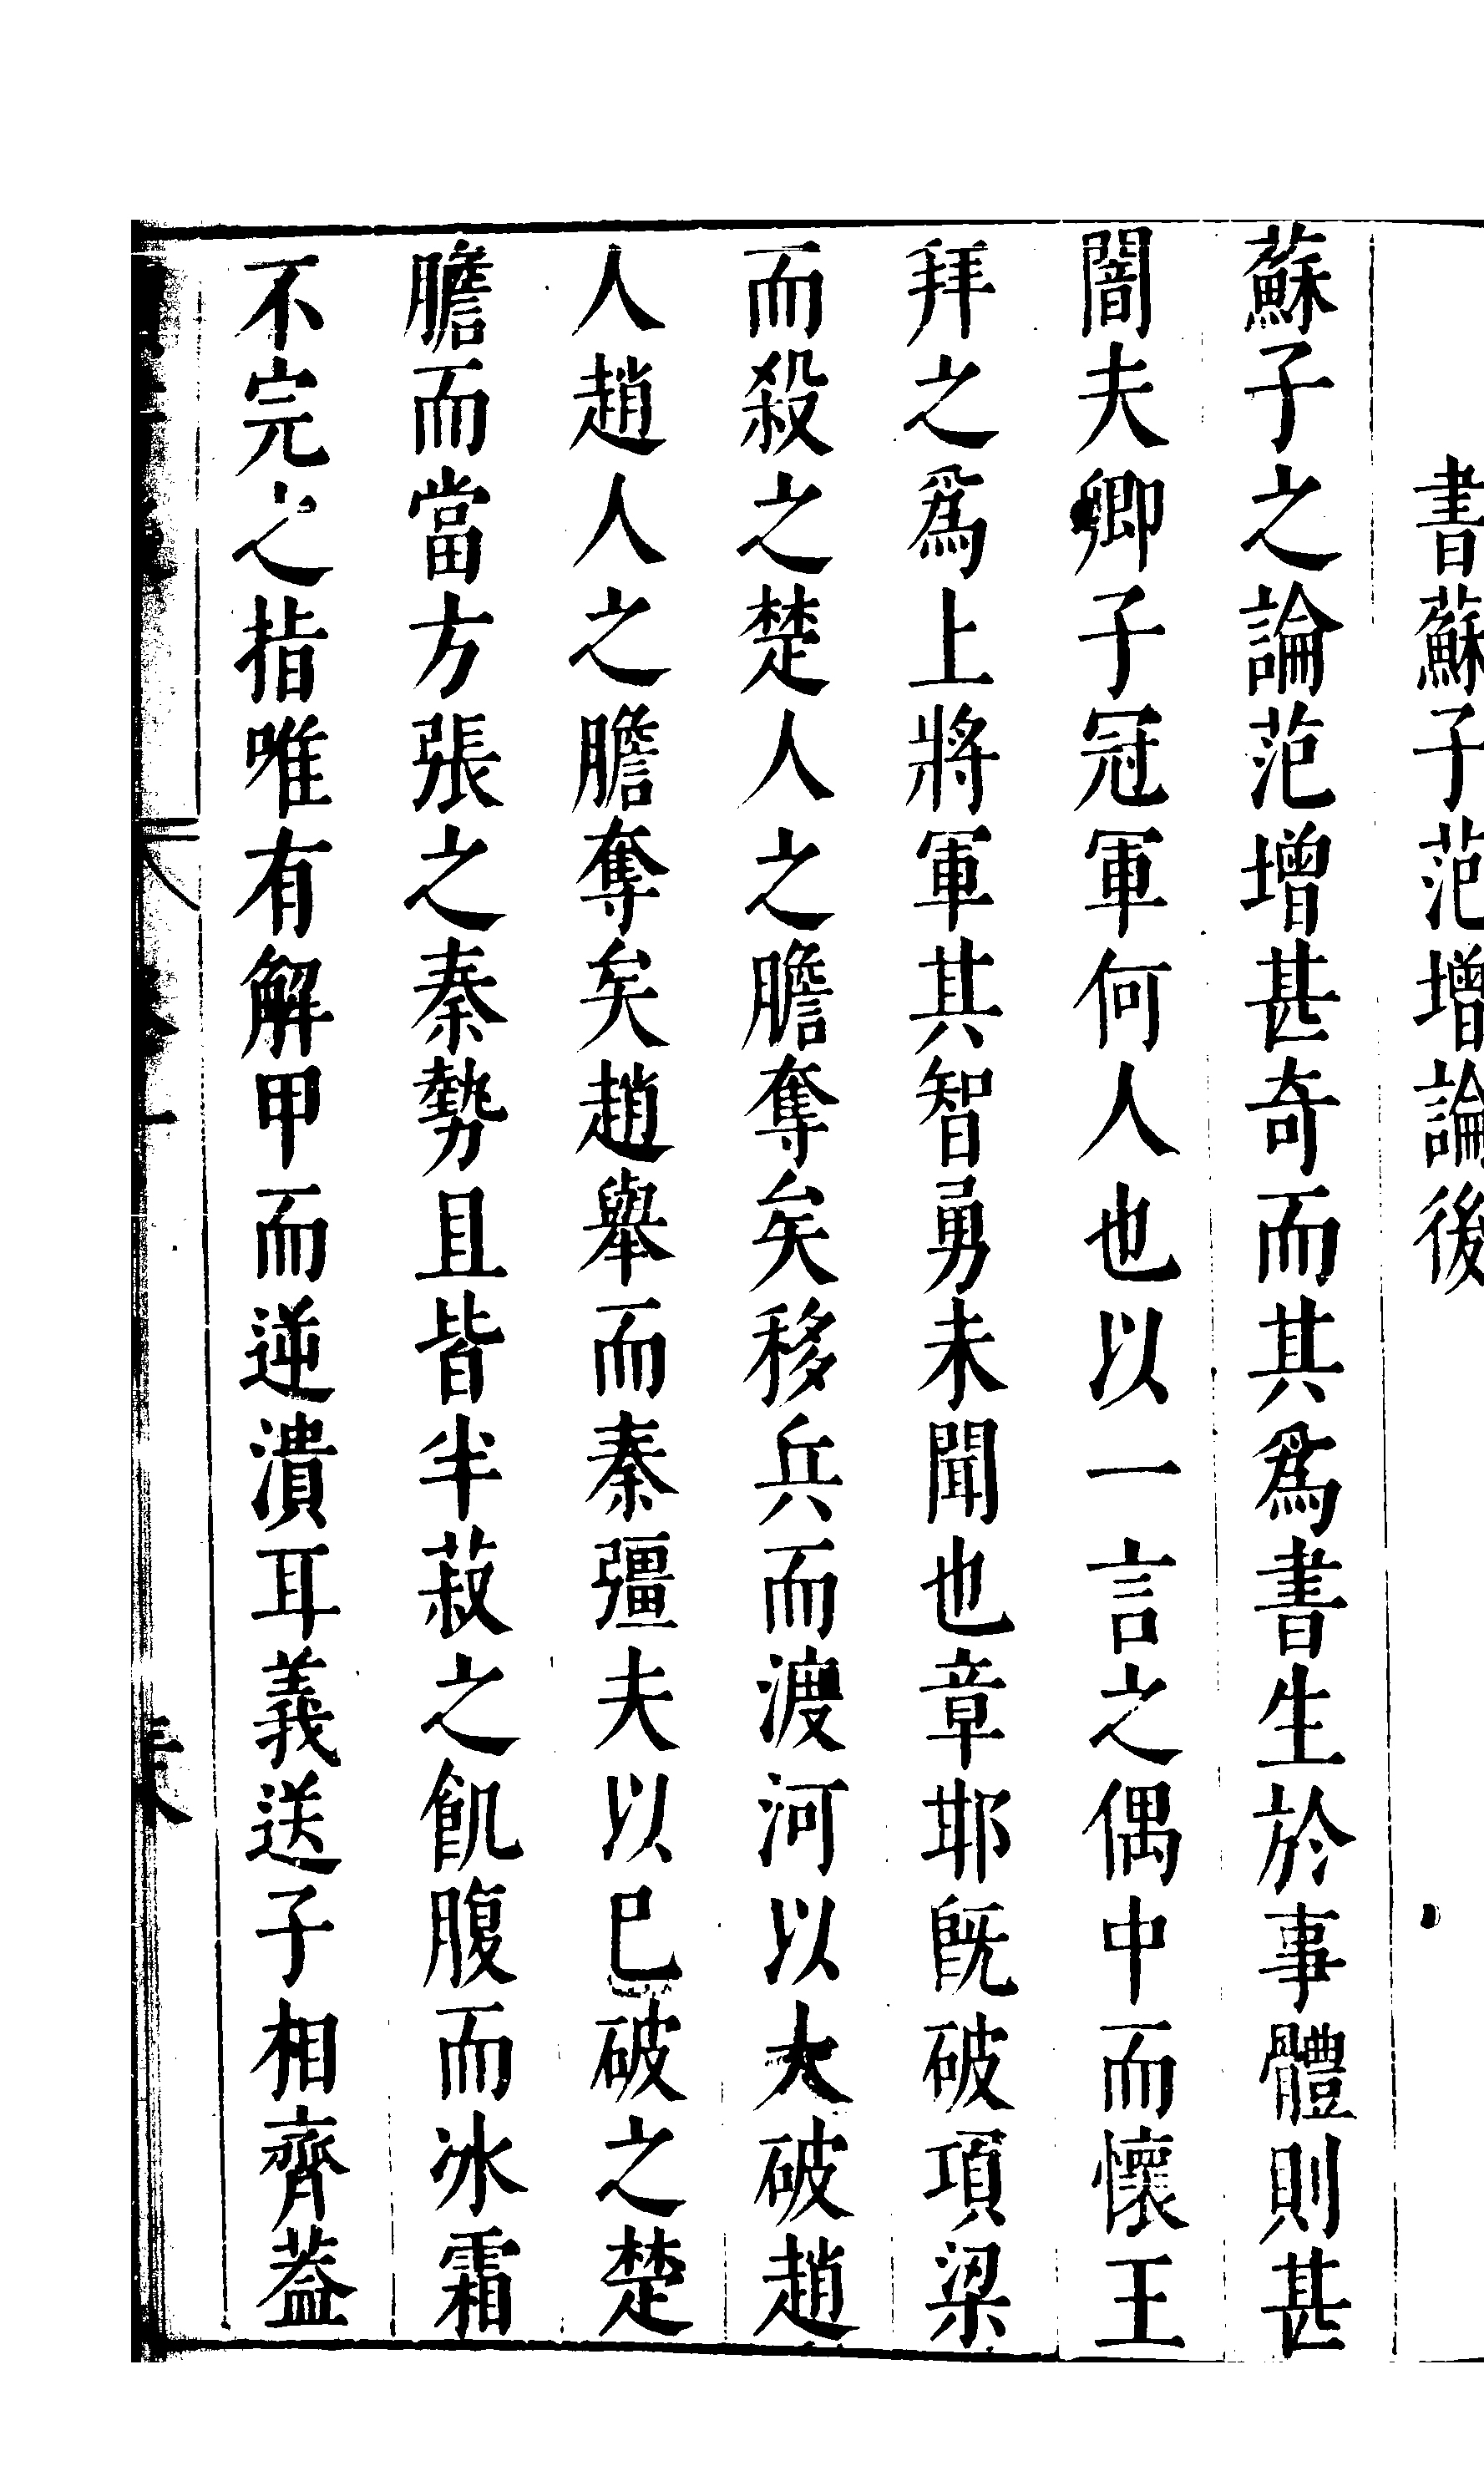 書蘇子范增論後
蘇子之論范增甚奇而其爲書生於事體則甚
闇夫卿子冠軍何人也以一言之偶中而懷王
拜之爲上將軍其智勇未聞也章邯既破項梁
而殺之楚人之膽奪矣移兵而渡河以大破趙
人趙人之膽奪矣趙舉而秦彊夫以巳破之楚
膽而當方張之秦勢且皆半菽之飢腹而冰霜
不完之指唯有解甲而逆潰耳義送子相齊葢